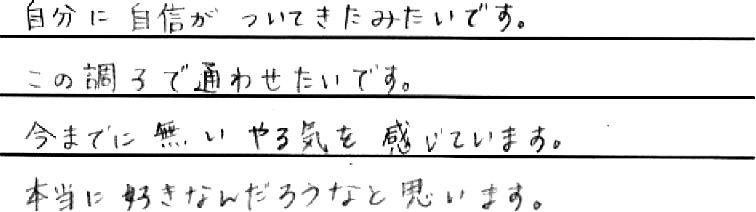 自分に自信がついてきたみたいです。
この調子で通わせたいです。
今までに無いやる気を感じています。
本当に好きなんだろうなと思います。